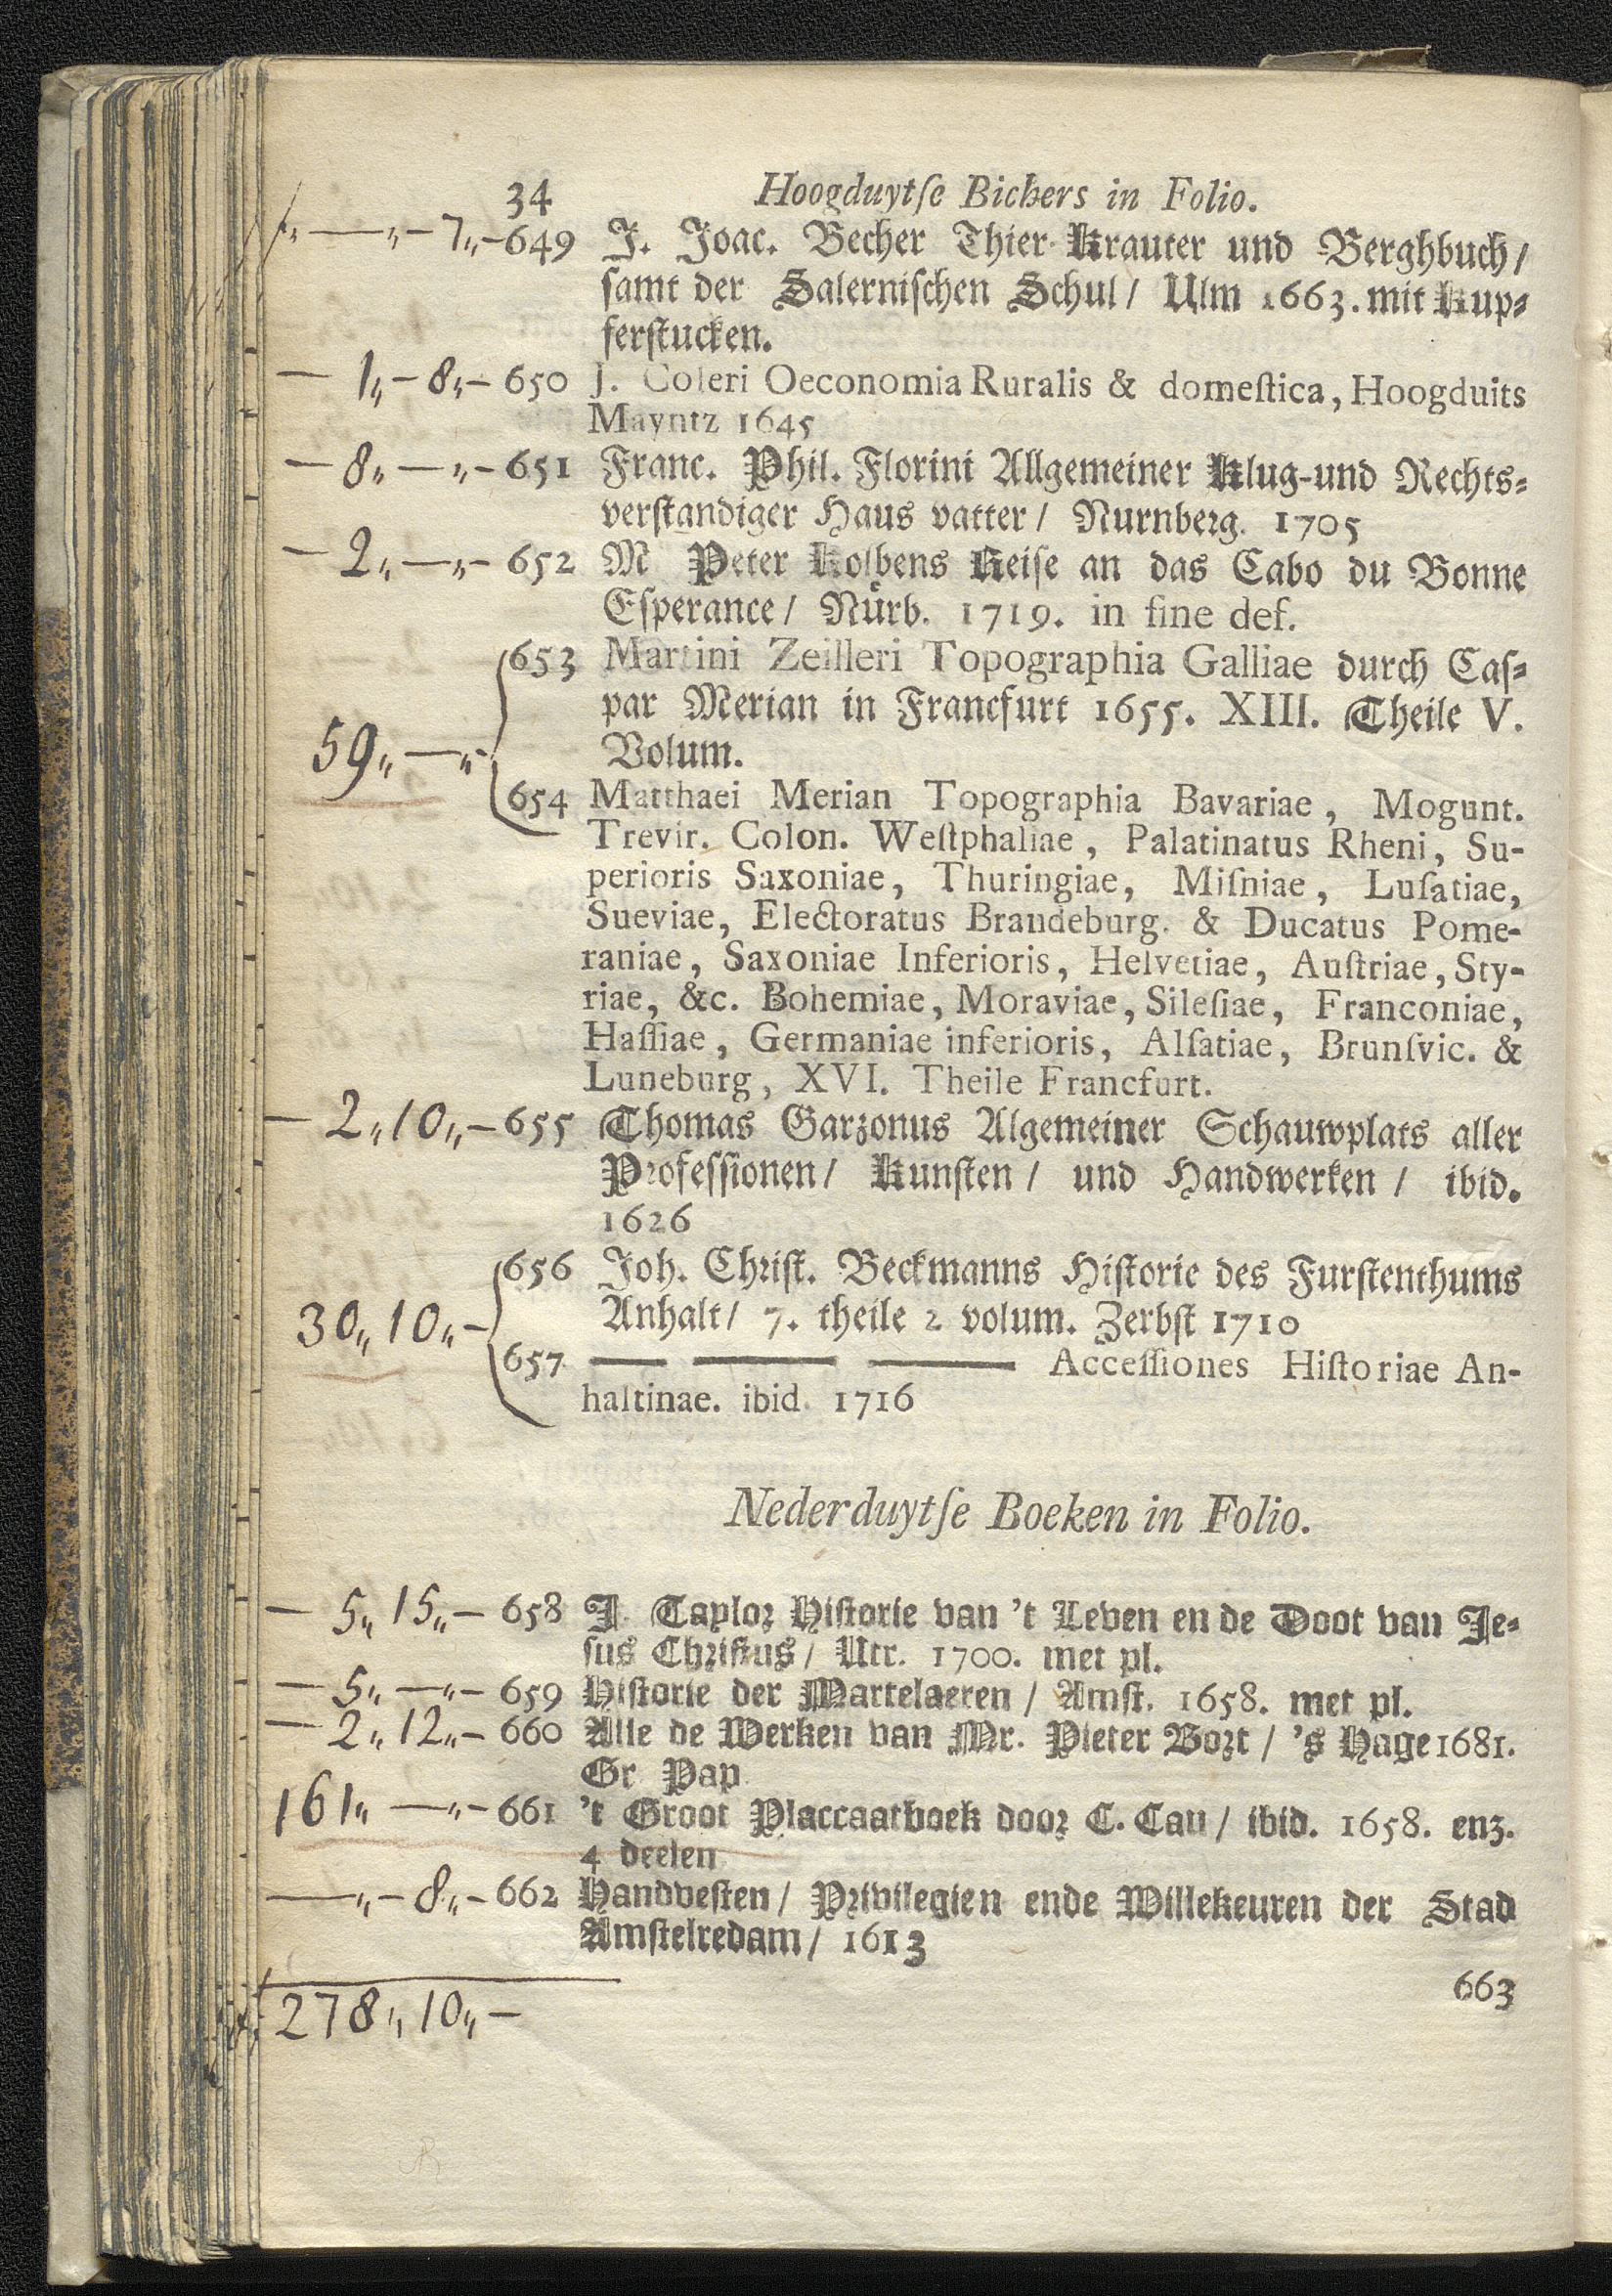 34 Hoogduytſe Bichers in Folio.
„ — „ - 7 „ - 649 J. Joac. Becher Thier- Krauter und Berghbuch /
samt der Salernischen Schul / Ulm 1663. mit Kup⸗
ferstucken.
— 1 „ - 8 „ - 650 J. Coleri Oeconomia Ruralis & domeſtica, Hoogduits
Mayntz 1645
— 8 „ — „ - 651 Franc. Phil. Florini Allgemeiner Klug-und Rechts⸗
verstandiger Haus vatter / Nurnberg. 1705
— 2 „ — „ - 652 M Peter Kolbens Reise an das Cabo du Bonne
Esperance / Nürb. 1719. in fine def.
653 Martini Zeilleri Topographia Galliae durch Cas⸗
par Merian in Francfurt 1655. XIII. Theile V.
59 „ — „ - Volum.
654 Matthaei Merian Topographia Bavariae, Mogunt.
Trevir. Colon. Weſtphaliae, Palatinatus Rheni, Su-
perioris Saxoniae, Thuringiae, Miſniae, Luſatiae,
Sueviae, Electoratus Brandeburg. & Ducatus Pome-
raniae, Saxoniae Inferioris, Helvetiae, Auſtriae, Sty-
riae, &c. Bohemiae, Moraviae, Sileſiae, Franconiae,
Haſſiae, Germaniae inferioris, Alſatiae, Brunſvic. &
Luneburg, XVI. Theile Francfurt.
— 2 „ 10 „ - 655 Thomas Garzonus Algemeiner Schauwplats aller
Professionen / Kunsten / und Handwerken / ibid.
1626
656 Joh. Christ. Beckmanns Historie des Furstenthums
30 „ 10 „ - Anhalt / 7. theile 2 volum. Zerbst 1710
657 — — — Acceſſiones Hiſtoriae An-
haltinae. ibid. 1716
Nederduytſe Boeken in Folio.
— 5 „ 15 „ - 658 J. Taylor Historie van 't Leven en de Doot van Je⸗
sus Christus / Utr. 1700. met pl.
— 5 „ — „ - 659 Historie der Martelaeren / Amst. 1658. met pl.
— 2 „ 12 „ - 660 Alle de Werken van Mr. Pieter Bort / 's Hage 1681.
Gr Pap.
161 „ — „ - 661 't Groot Placcaatboek door C. Cau / ibid. 1658. enz.
4 deelen
— „ - 8 „ - 662 Handvesten / Privilegien ende Willekeuren der Stad
Amstelredam / 1613
663
278 „ 10 „ -